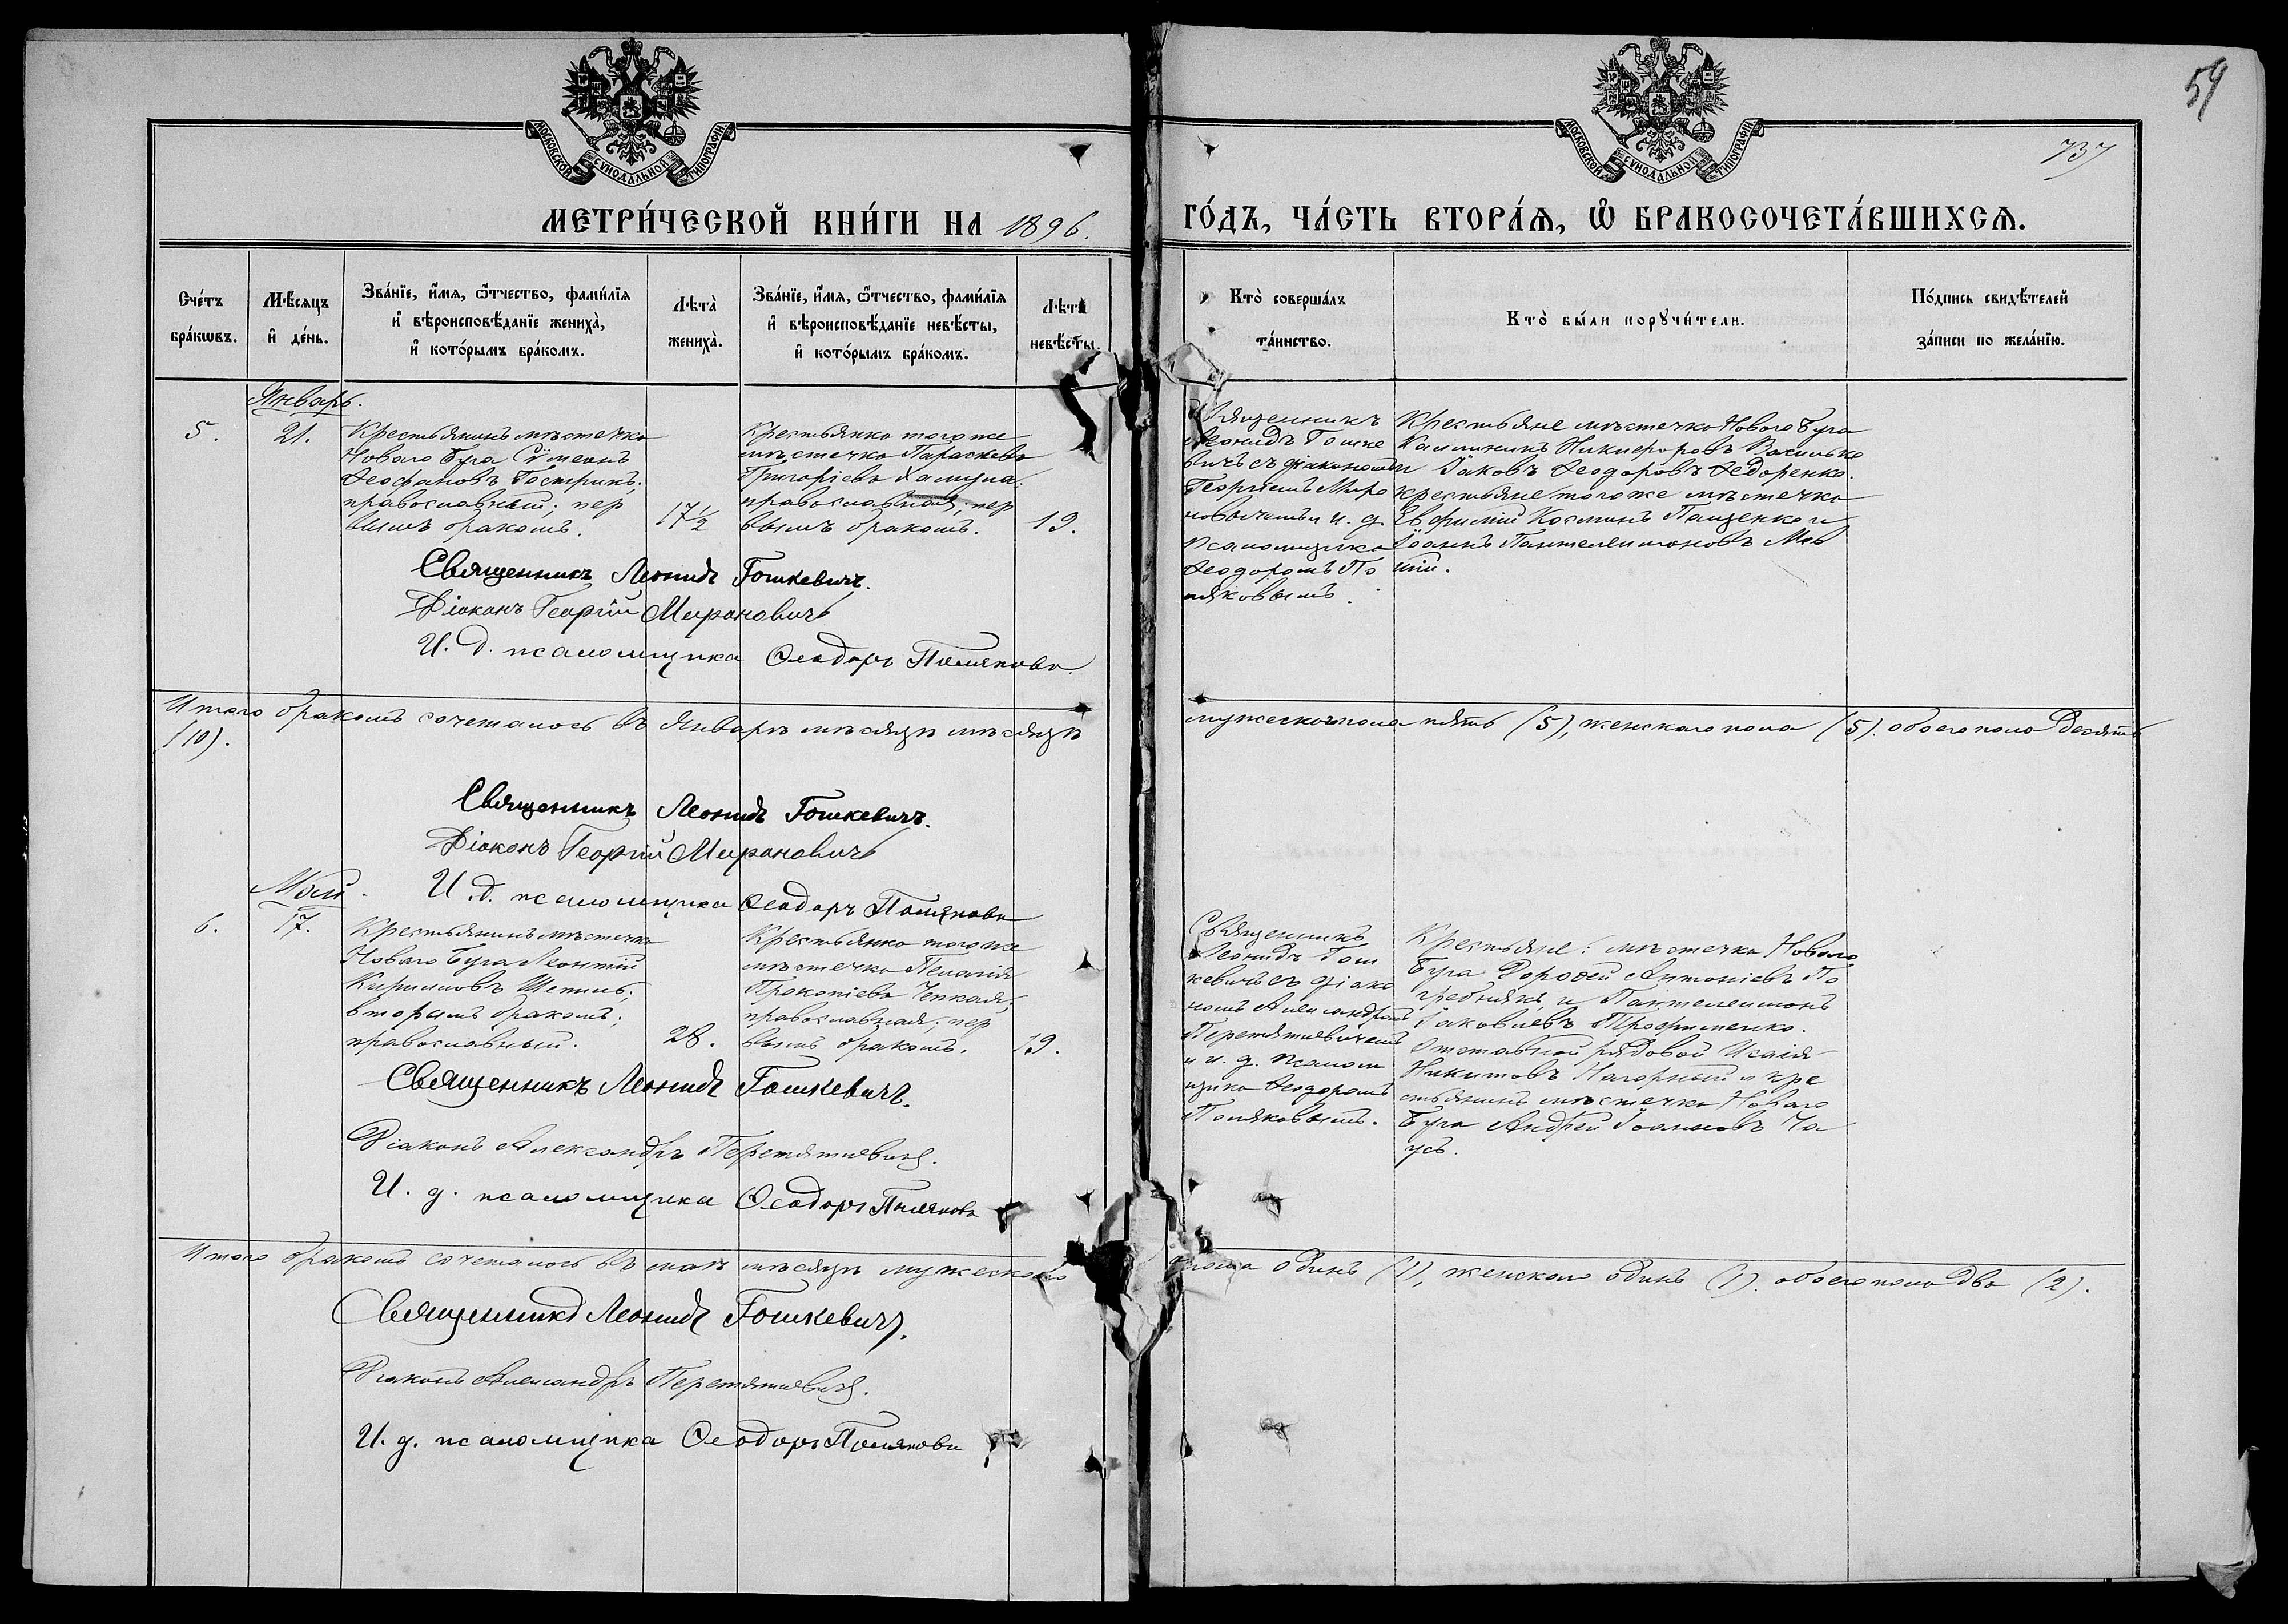 59
737
МОСКОВСКОЙ СѴНОДАЛЬНОЙ ТИПОГРАФІИ
МОСКОВСКОЙ СѴНОДАЛЬНОЙ ТИПОГРАФІИ
МЕТРИ́ЧЕСКОЙ КНИ́ГИ НА 1896.
ГО́ДЪ, ЧА́СТЬ ВТОРА́Ѧ, Ѽ БРАКОСОЧЕТА́ВШИХСѦ.
Сче́тъ
бра́кѡвъ.
Мѣ́сѧцъ
и҆ де́нь.
Зва́нїе, и҆́мѧ, ѻ҆́тчество, фами́лїѧ
и҆ вѣроисповѣ́данїе жениха̀,
и҆ кото́рымъ бра́комъ.
Лѣта̀
жениха̀.
Зва́нїе, и҆́мѧ, ѻ҆́тчество, фами́лїѧ
и҆ вѣроисповѣ́данїе невѣ́сты,
и҆ кото́рымъ бра́комъ.
Лѣта̀
невѣ́сты.
Кто̀ соверша́лъ
та́инство.
Кто̀ бы́ли порꙋчи́тели.
По́дпись свидѣ́телей
за́писи по жела́нїю.
Январь.
5.
21.
Крестьянинъ мѣстечка
Новаго Буга Сѵмеонъ
Ѳеофановъ
православный; пер
вымъ бракомъ.
17½
Крестьянка того же
мѣстечка Параскева
Григоріева
православная; пер
вымъ бракомъ.
19.
Священникъ
Леонидъ Гошке
вичъ съ діакономъ
Георгіемъ Миро
новичемъ и и. д.
псаломщика
Ѳеодоромъ По
ляковымъ.
Крестьяне мѣстечка Новаго Буга
Каллиникъ Никифоровъ Василько
и Іаковъ Ѳеодоровъ Ѳедоренко.
крестьяне того же мѣстечка
Евфимій Косминъ Пащенко и
Іоаннъ Пантелеимоновъ
Священникъ Леонидъ Гошкевичъ.
Діаконъ Георгій Мироновичъ
И. д. псаломщика Ѳеодоръ Поляковъ.
Итого бракомъ сочеталось въ Январѣ мѣсяцѣ мѣсяцѣ
мужескаго пола пять (5), женскаго пола (5). обоего пола десять
(10).
Священникъ Леонидъ Гошкевичъ.
Діаконъ Георгій Мироновичъ
И. д. псаломщика Ѳеодоръ Поляковъ
Май.
6.
17.
Крестьянинъ мѣстечка
Новаго Буга Леонтій
Кирилловъ Шепель;
вторымъ бракомъ;
православный.
28.
Крестьянка того же
мѣстечка Пелагія
Прокопіева Чепкая;
православная; пер
вымъ бракомъ.
19.
Священникъ
Леонидъ Гош
кевичъ съ діако
номъ Александромъ
Перетятковичемъ
и и. д. псалом
щика Ѳеодоромъ
Поляковымъ.
Крестьяне: мѣстечка Новаго
Буга Дороѳей Антоніевъ По
гребнякъ и Пантелеимонъ
Іаковлевъ Трофименко.
Отставной рядовой Исаія
Никитовъ Нагорный и кре
стьянинъ мѣстечка Новаго
Буга Андрей Іоанновъ Ча
усъ.
Священникъ Леонидъ Гошкевичъ.
Діаконъ Александръ Перетятковичъ.
И. д. псаломщика Ѳеодоръ Поляковъ
Итого бракомъ сочеталось въ маѣ мѣсяцѣ мужескаго
пола одинъ (1), женскаго одинъ (1). обоего пола два (2).
Священникъ Леонидъ Гошкевичъ.
Діаконъ Александръ Перетятковичъ.
И. д. псаломщика Ѳеодоръ Поляковъ